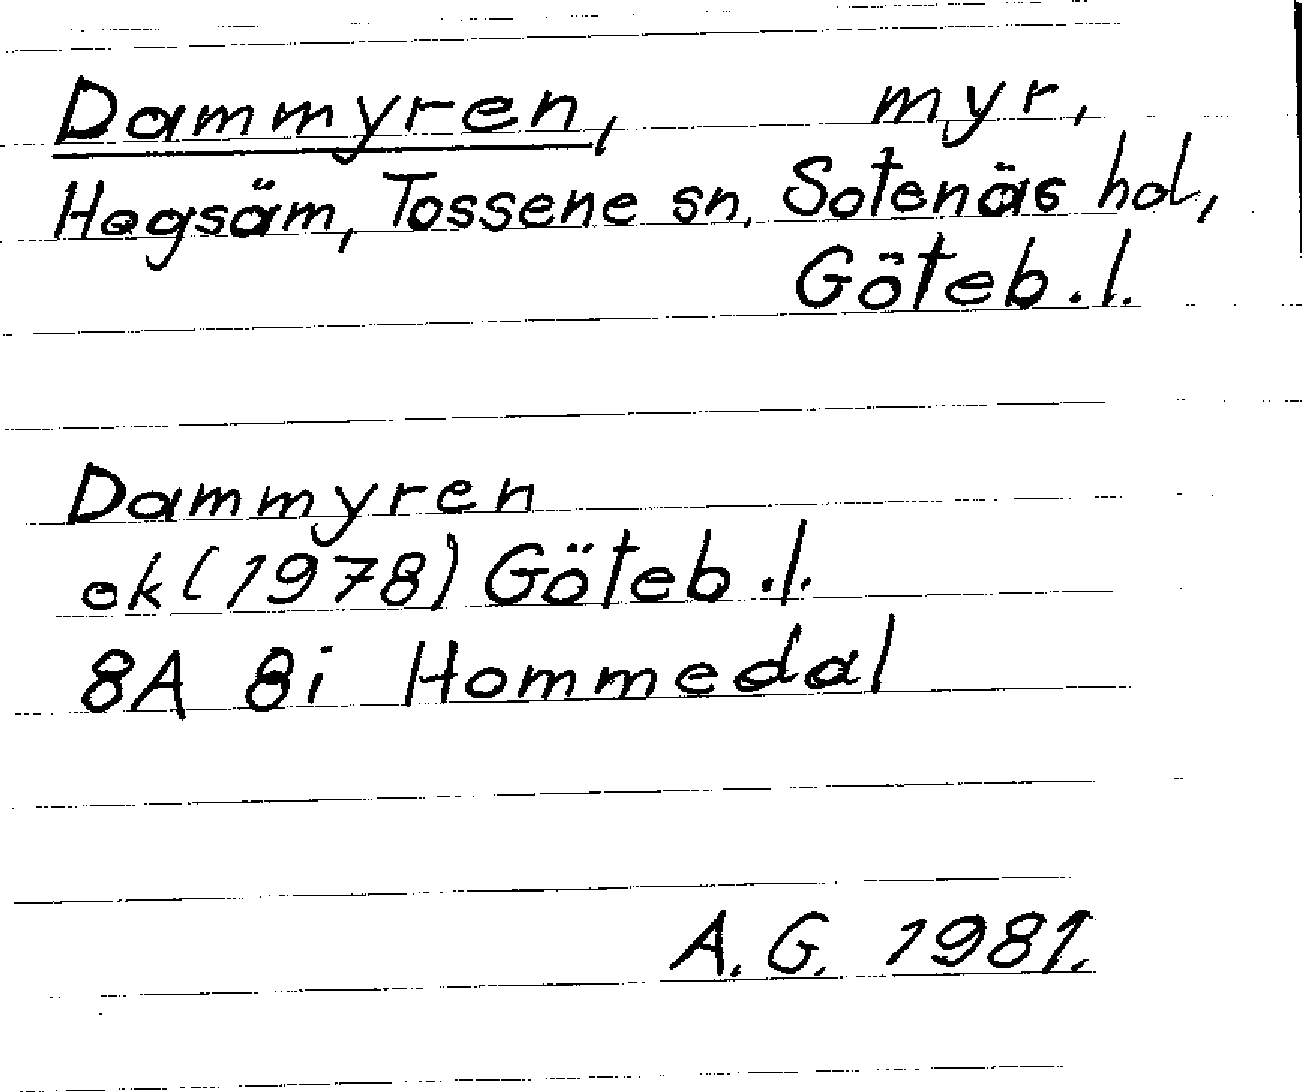 Dammyren, myr,
Hogsäm, Tossene sn, Sotenäs hd,
Göteb. l.
Dammyren
ek (1978) Göteb. l.
8A 8i Hommedal
A. G. 1981.